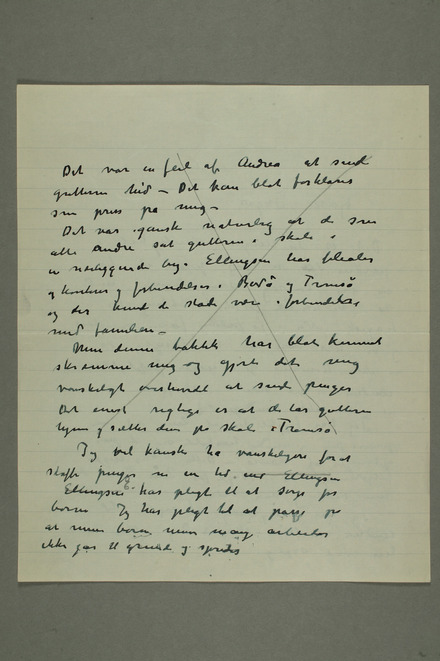 Det var en feil af Andrea at sende
guttene hid – Det kan blot forklares
som pres på mig –
Det var ganske naturlig at de som
alle andre sat guttene i skole i
en nærliggende by. Ellingsen has filialer
og kontorer og forbindelser i Bodö og Tromsö
og der kunde de stadig være i forbindelse
med familien –
Men denne taktik har blot kunnet
skræmme mig og gjort det mig
vanskeligt overhovedt at sende penger
Det eneste rigtige er at de tar guttene
hjem og sætter dem på skole i Tromsö
Jeg vil kanske ha vanskeligere for at
skaffe penger om en tid end Ellingsen
Ellingsen har pligt til at sørge for
barna Jeg har pligt til at passe på
at mine barn, min arbeide
ikke går til grunde og spredes